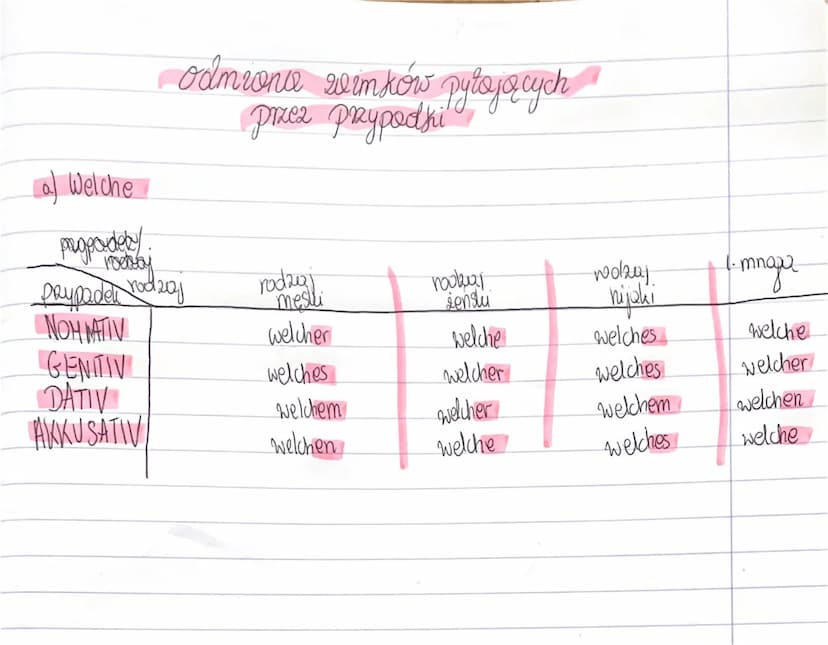 odmiana zaimków pytających
przez przypadki
a) Welche
przypadek/
rodzaj
przypadek rodzaj rodzaj męski rodzaj żeński rodzaj nijaki l. mnoga
NOMATIV welcher welche welches welche
GENITIV welches welcher welches welcher
DATIV welchem welcher welchem welchen
AKKUSATIV welchen welche welches welche